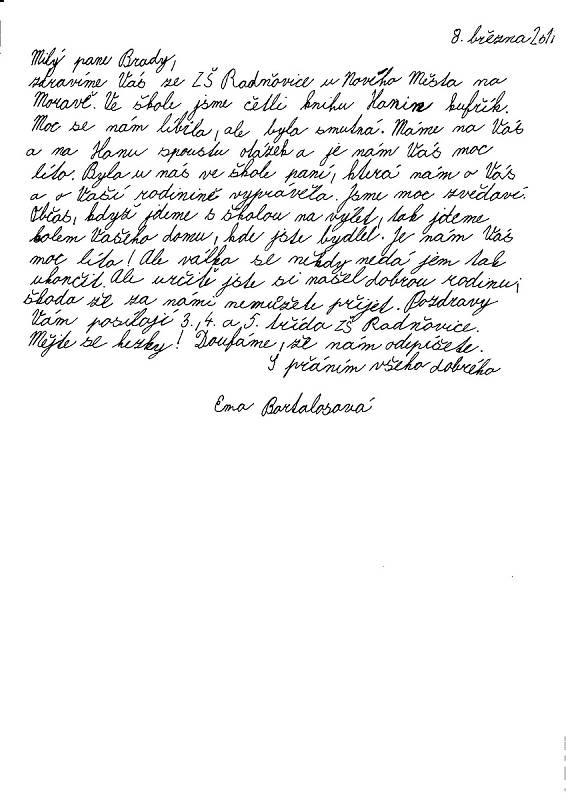 8. března 2011
Milý pane Brady,
zdravíme Vás ze ZŠ Radňovice u Nového Města na
Moravě. Ve škole jsme četli knihu Hanin kufřík.
Moc se nám líbila, ale byla smutná. Máme na Vás
a na Hanu spoustu otázek a je nám Vás moc
líto. Byla u nás ve škole paní, která nám o Vás
a o Vaší rodinině vyprávěla. Jsme moc zvědaví.
Občas, když jdeme s školou na výlet, tak jdeme
kolem Vašeho domu, kde jste bydlel. Je nám Vás
moc líto! Ale válka se někdy nedá jem tak
ukončit. Ale určitě jste si našel dobrou rodinu,
škoda že za námi nemůžete přijet. Pozdravy
Vám posílají 3., 4. a 5. třída ZŠ Radňovice.
Mějte se hezky! Doufáme, že nám odepíšete.
S přáním všeho dobrého
Ema Bartalosová